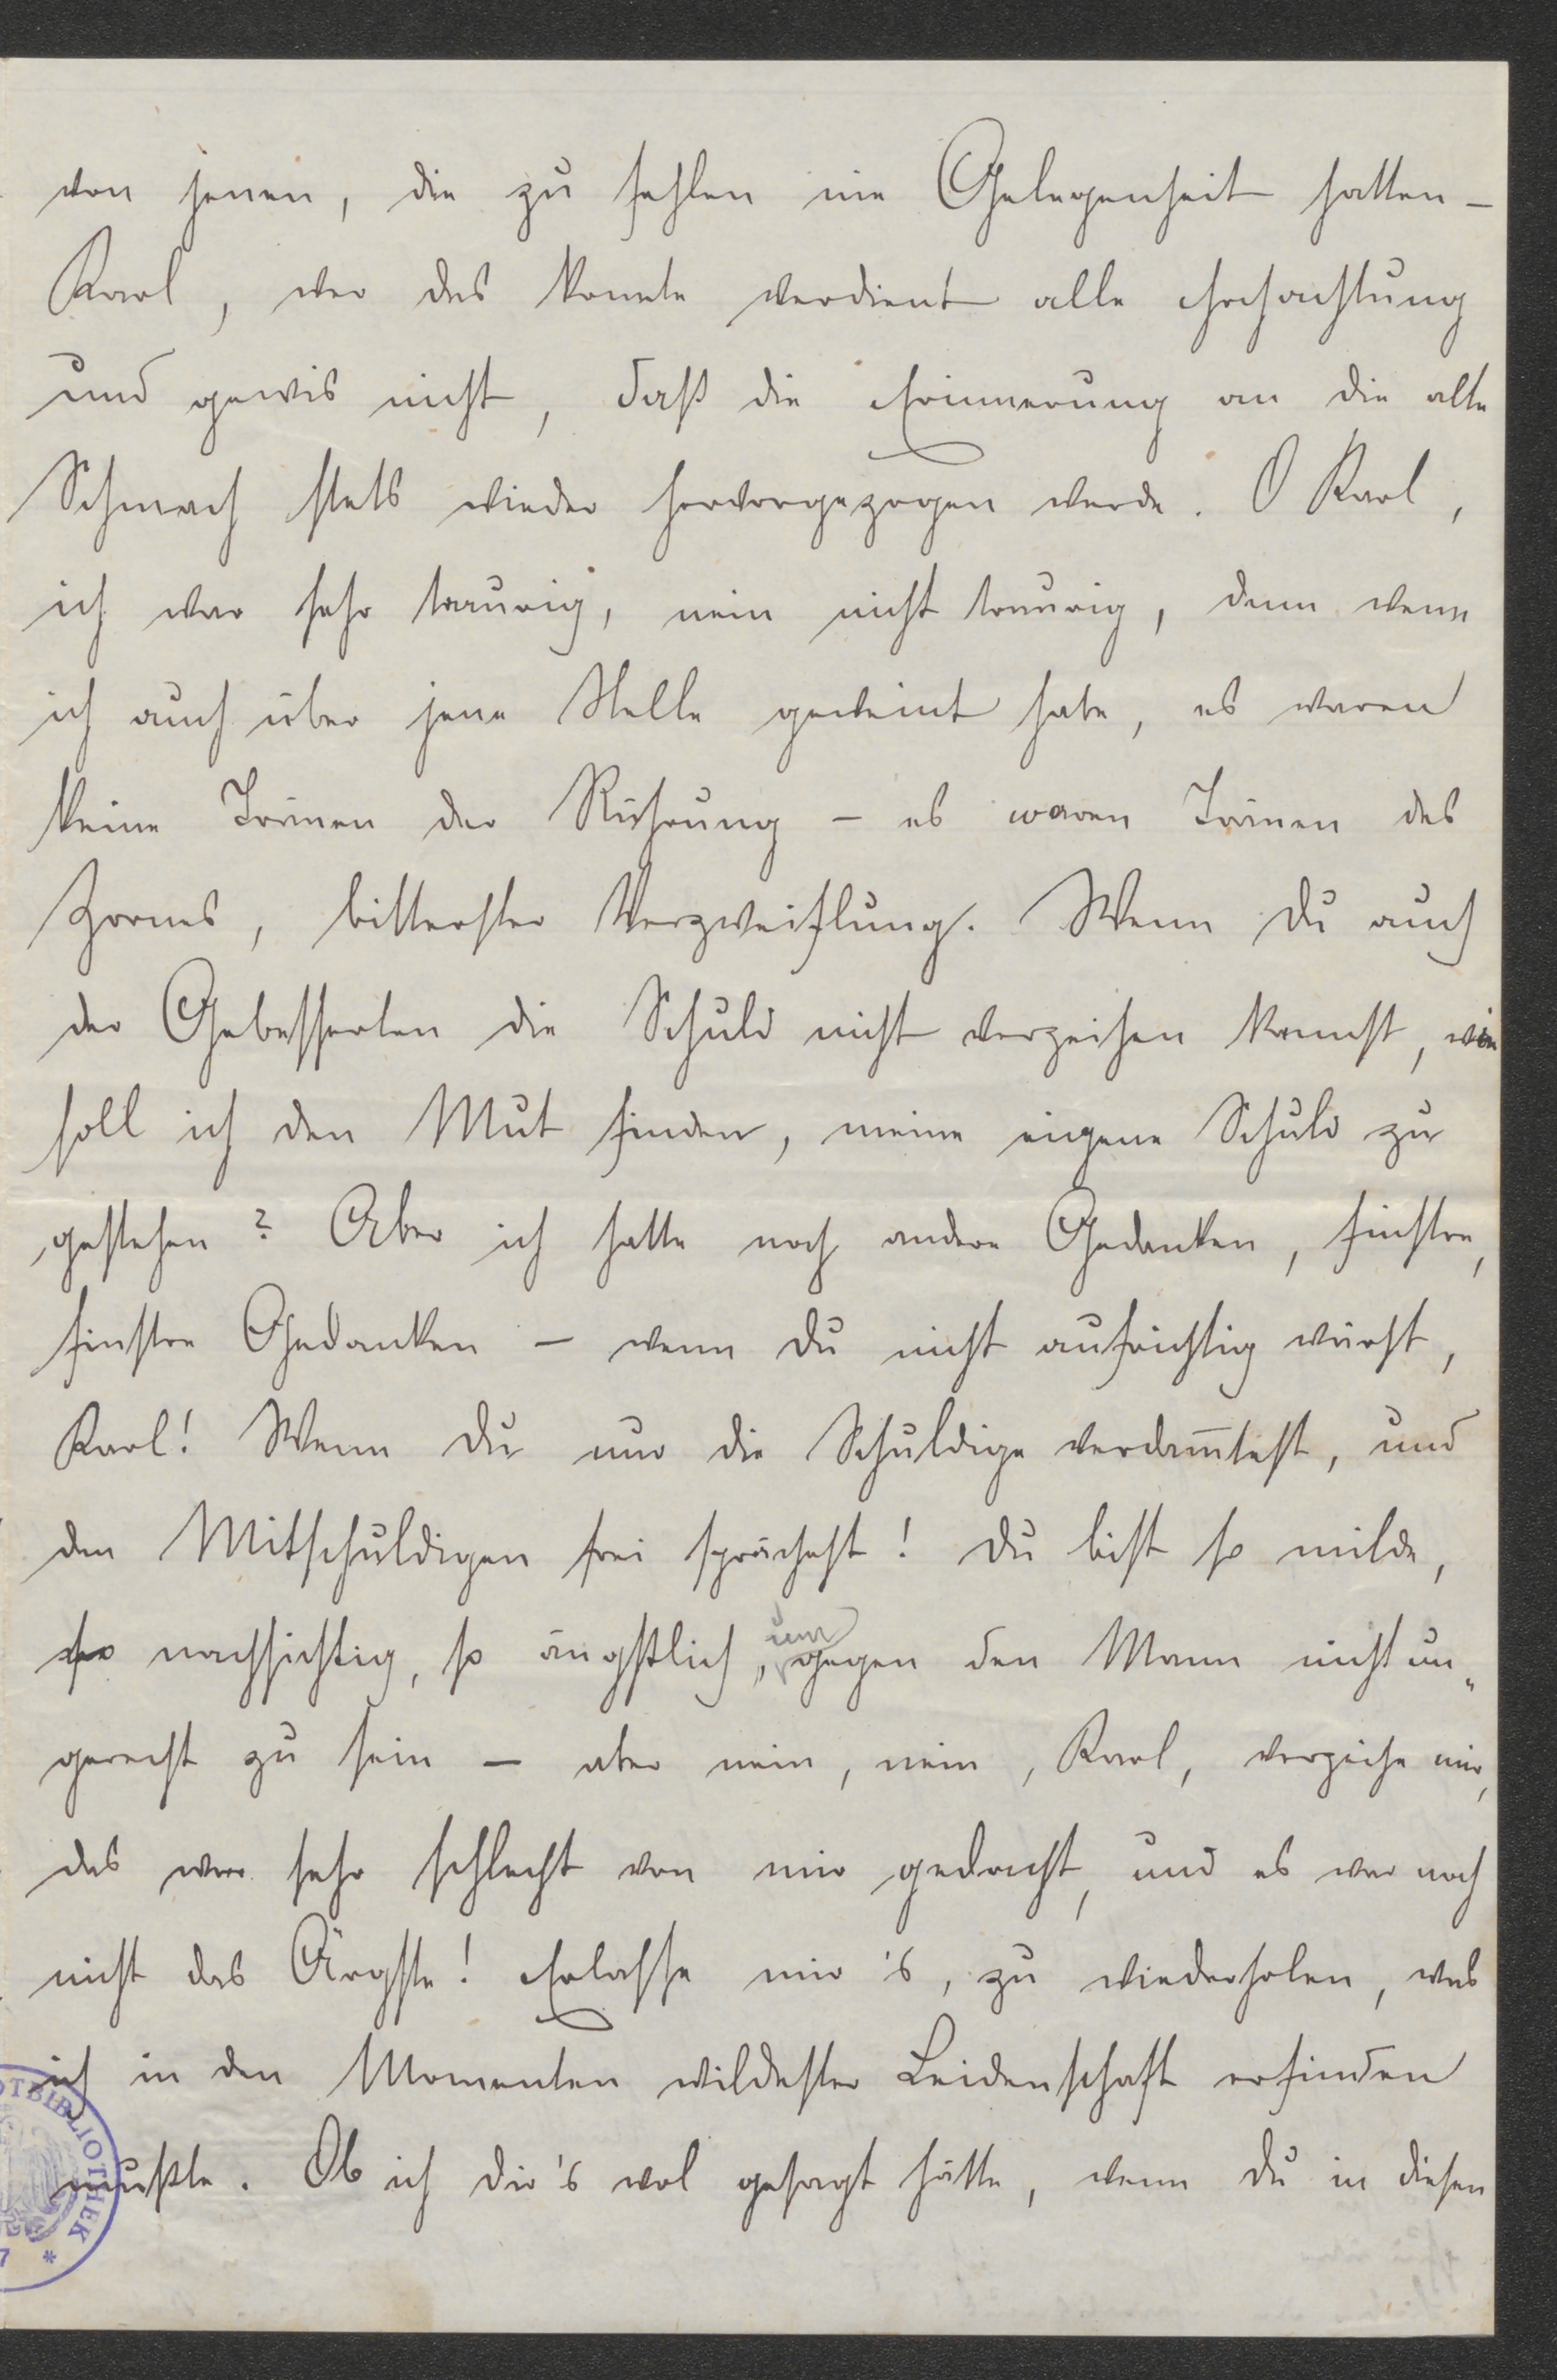 von jenen, die zu fehlen nie Gelegenheit hatten –
Karl, wer das konnte verdient alle Hochachtung
und gewis nicht, daß die Erinnerung an die alte
Schmach stets wieder hervorgezogen werde. O Karl,
ich war sehr traurig, nein nicht traurig, denn wenn
ich auch über jene Stelle geweint habe, es waren
keine Tränen der Rührung – es waren Tränen des
Zornes, bitterster Verzweiflung. Wenn du auch
der Gebesserten die Schuld nicht verzeihen kannst, wie
soll ich den Mut finden, meine eigene Schuld zu
gestehen? Aber ich hatte noch andere Gedanken, finstre,
finstre Gedanken – wenn du nicht aufrichtig wärst,
Karl! Wenn du nur die Schuldige verdam̅test, und
den Mitschuldigen frei sprächest! Du bist so milde,
so nachsichtig, so ängstlich, um gegen den Mann nicht un„
gerecht zu sein – aber nein, nein, Karl, verzeihe mir,
das war sehr schlecht von mir gedacht, und es war noch
nicht das Ärgste! Erlasse mir's, zu wiederholen, was
ich in den Momenten wildester Leidenschaft erfinden
mußte. Ob ich dir's wol gesagt hätte, wenn du in diesen
OTBIBLIOTHEK
7 *